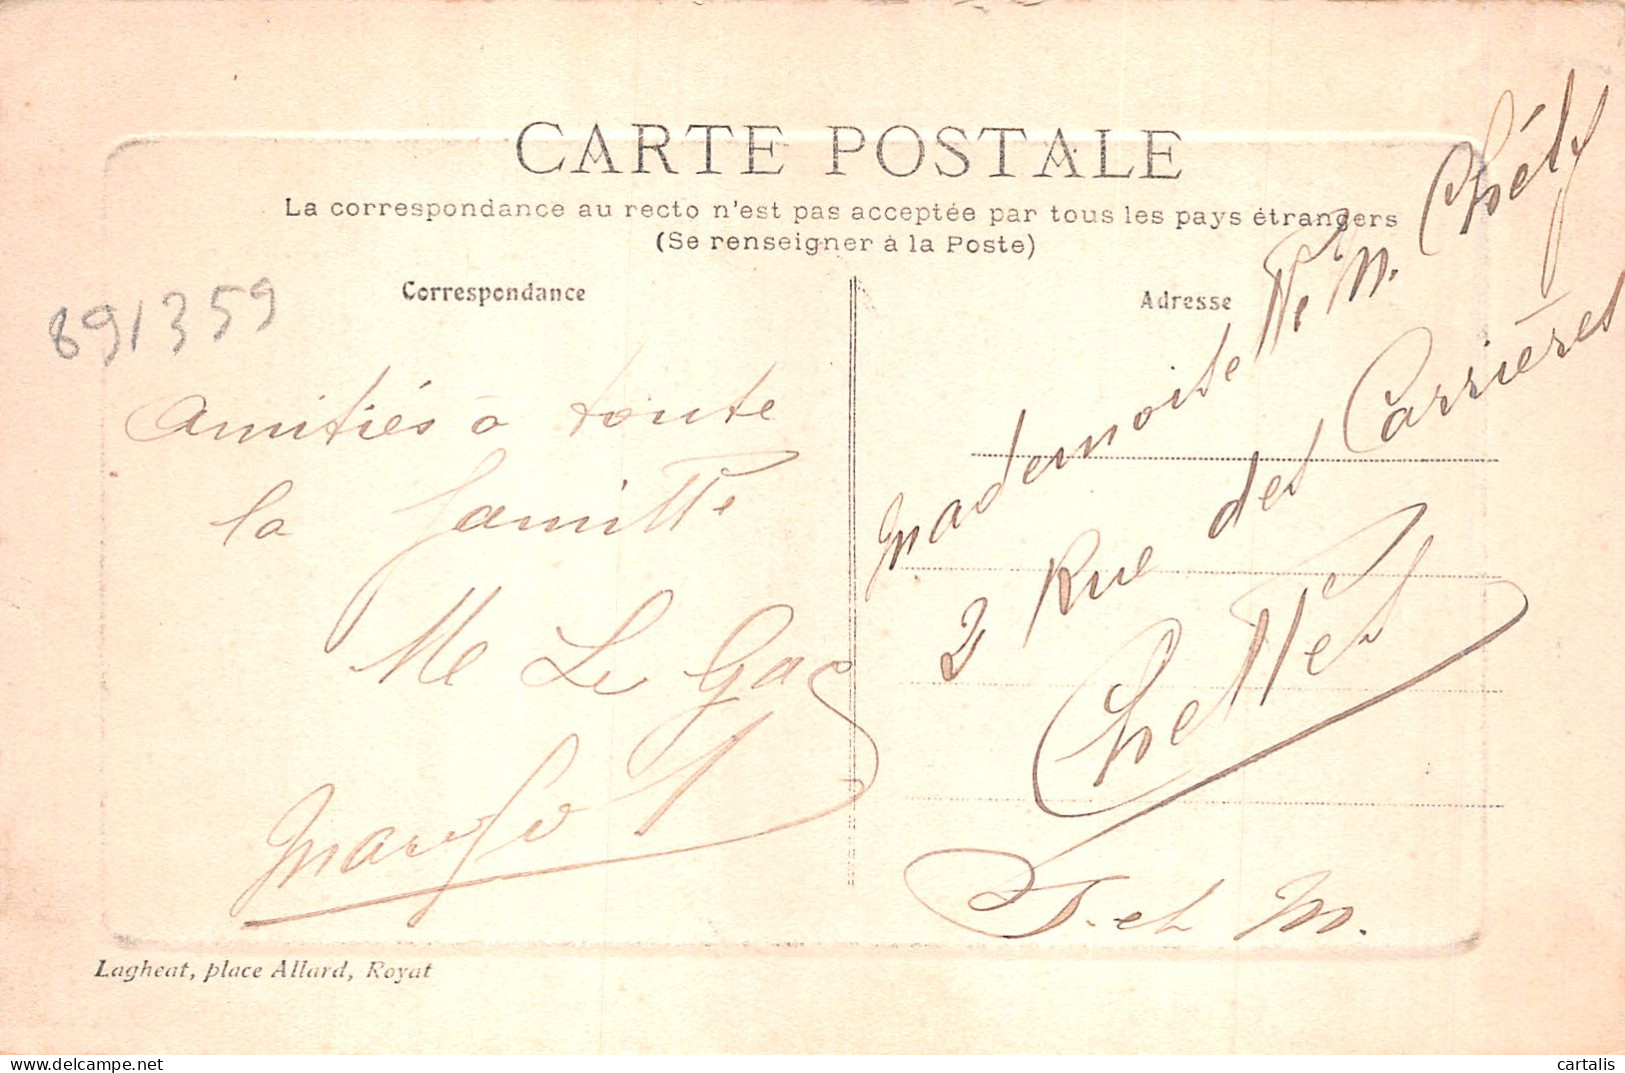 CARTE POSTALE
La correspondance au recto n'est pas acceptée par tous les pays étrangers
(Se renseigner à la Poste)
Correspondance
Adresse
891359
Amitiés à toute
la famille
Me Le Gac
Mademoiselle M. Chély
2 Rue des Carrières
Chelles
S. et M.
Lagheat, place Allard, Royat
cartalis